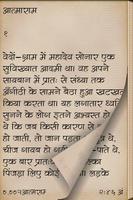 आत्माराम
१
वेदों-ग्राम में महादेव सोनार एक
सुविख्यात आदमी था। वह अपने
सायबान में प्रातः से संध्या तक
अँगीठी के सामने बैठा हुआ खटखट
किया करता था। यह लगातार ध्वनि
सुनने के लोग इतने अभ्यस्त हो
थे कि जब किसी कारण से
हो जाती, तो जान पड़ता था,
चीज गायब हो
एक बार प्रातः
पिंजड़ा लिए कोई
०.००%आत्माराम २:४६ अं